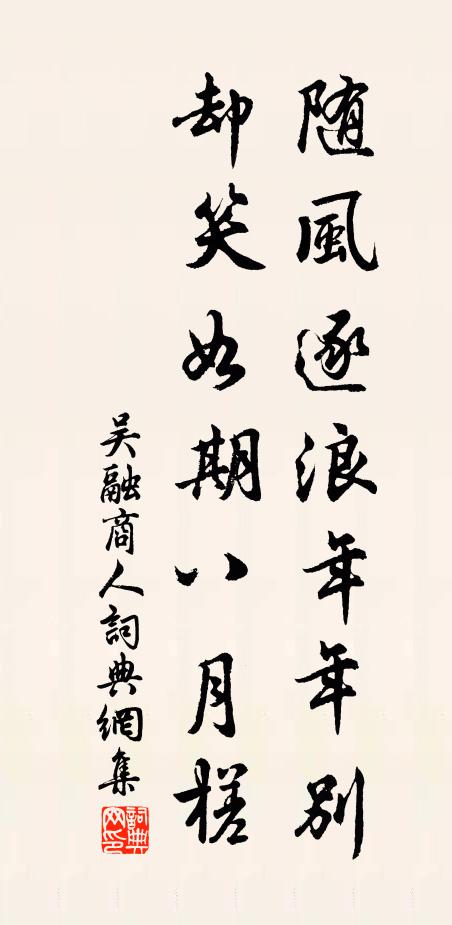 随風逐浪年年别
却笑如期八月槎
吴融商人詞典網集
詞典網印